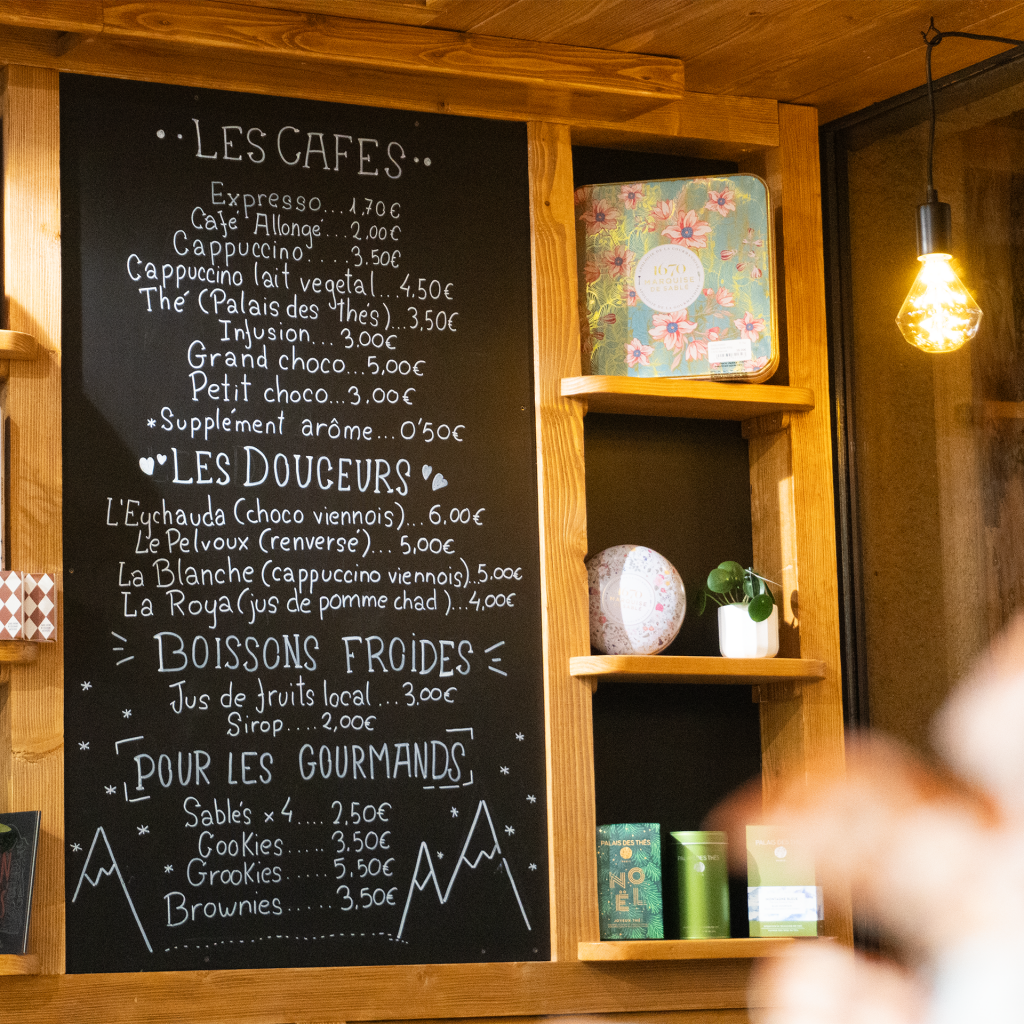 LES CAFES
Expresso...1,70€
Café Allongé...2,00€
Cappuccino.....3.50€
Cappuccino lait vegetal...4.50€
Thé (Palais des thés)...3,50€
Infusion...3,00€
Grand choco...5,00€
Petit choco...3,00€
*Supplément arôme...0'50€
LES DOUCEURS
L'Eychauda (choco viennois)...6,00€
Le Pelvoux (renversé)...5,00€
La Blanche (cappuccino viennois)..5.00€
La Roya (jus de pomme chad )...4,00€
BOISSONS FROIDES
Jus de fruits local...3,00€
Sirop....2,00€
POUR LES GOURMANDS
Sablés x 4.... 2,50€
Cookies..... 3.50€
Grookies..... 5,50€
Brownies..... 3,50€
1670
MARQUISE
DE SABLÉ
PALAIS DES THÉS
NOËL
PALAIS DES THÉS
PALAIS DES THÉS